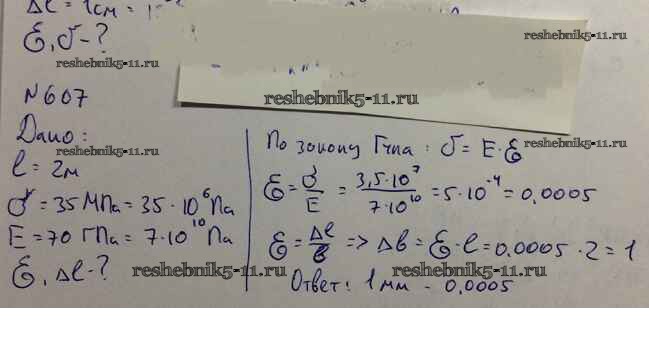 Δl = 1см =
ε, σ - ?
reshebnik5-11.ru
reshebnik5-11.ru
N607
reshebnik5-11.ru
Дано:
reshebnik5-11.ru
l = 2м
σ = 35 МПа = 35 · 10⁶ Па
E = 70 ГПа = 7·10¹⁰ Па
ε, Δl - ?
По закону Гука : σ = E · ε
reshebnik5-11.ru
ε = σ/E = 3,5·10⁷/7·10¹⁰ = 5·10⁻⁴ = 0,0005
ε = Δl/l => Δl = ε·l = 0,0005 · 2 = 1
reshebnik5-11.ru
reshebnik5-11.ru
Ответ: 1мм - 0,0005